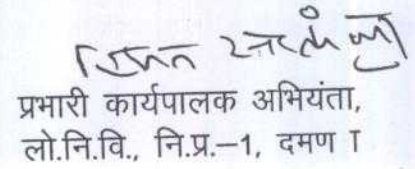 प्रभारी कार्यपालक अभियंता,
लो.नि.वि., नि.प्र.–1, दमण T